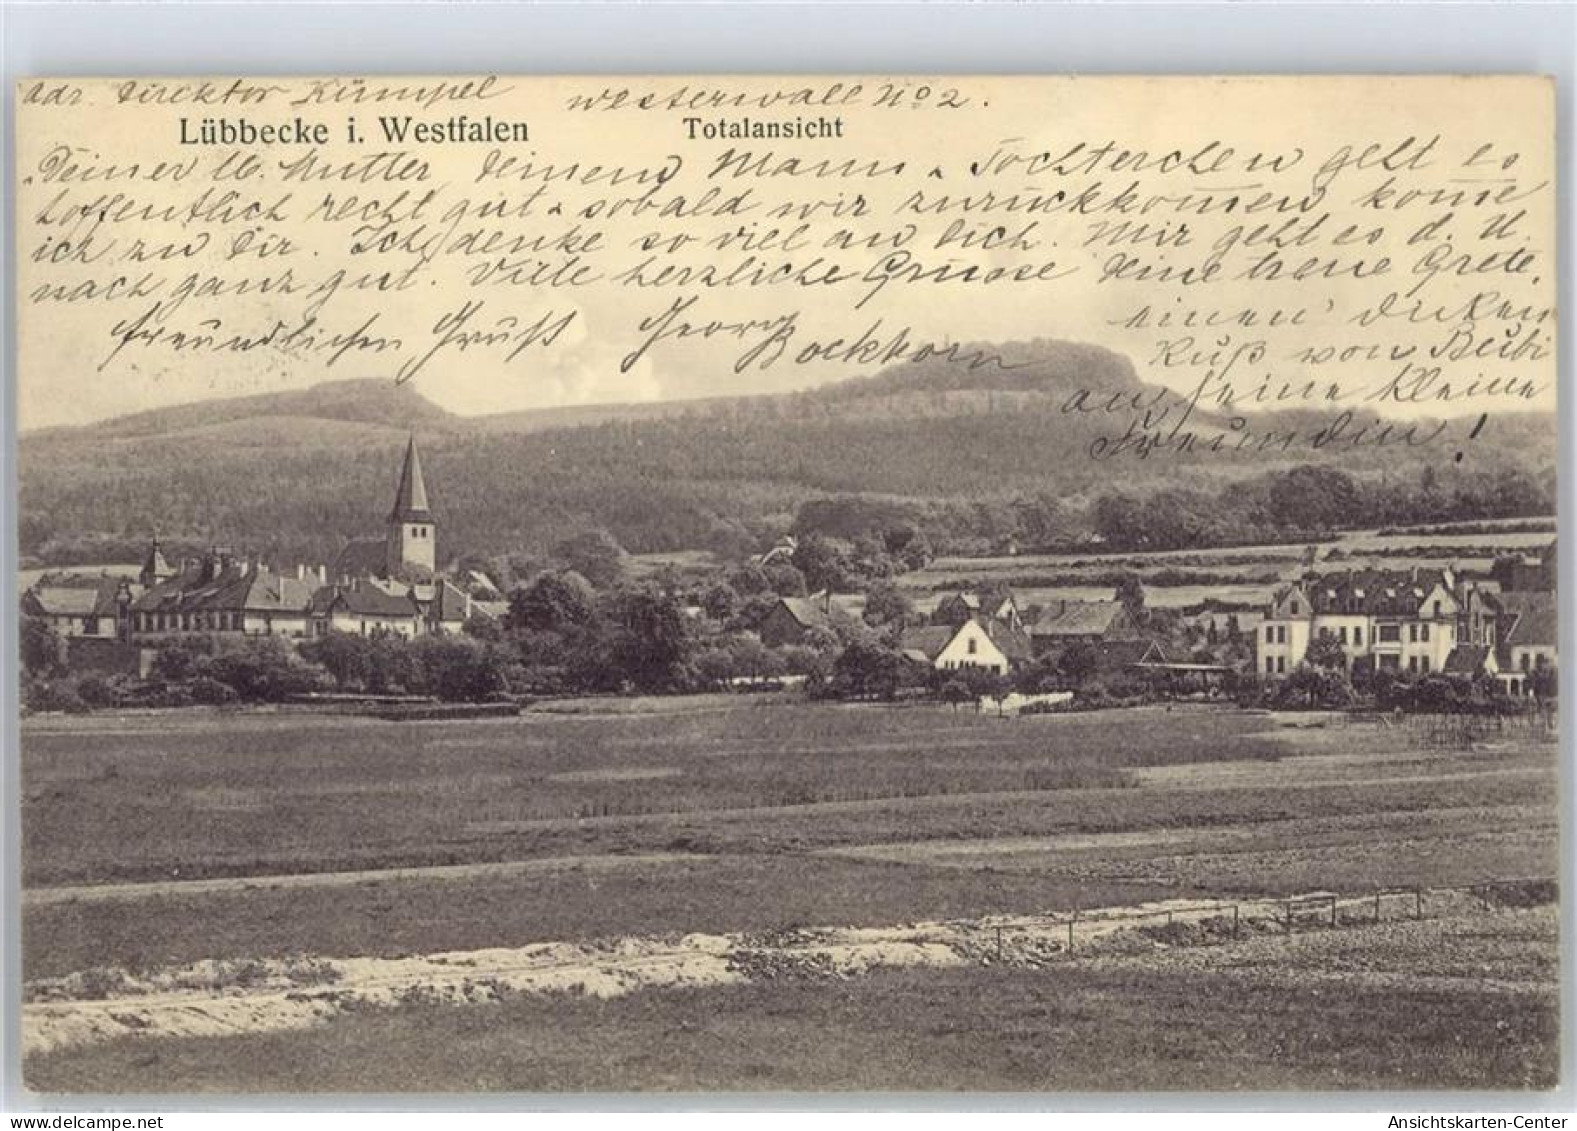 adr. Direktor Kümpel Westerwall No 2.
Lübbecke i. Westfalen Totalansicht
Deiner lb. Mutter, Deinem Mann u. Töchterchen geht es
hoffentlich recht gut u. sobald wir zurückkom̄en kom̄e
ich zu Dir. Ich denke so viel an Dich. Mir geht es d. U.
nach ganz gut. Viele herzliche Grüsse Deine treue Grete.
freundlichen Gruß Georg Bockhorn
einen dicken
Kuß von Bubi
an seine kleine
Freundin!
delcampe.net
Ansichtskarten-Center